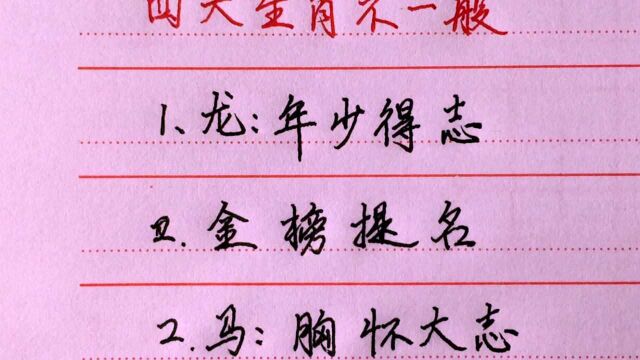 四大生肖不一般
1、龙:年少得志
金榜提名
2.马:胸怀大志